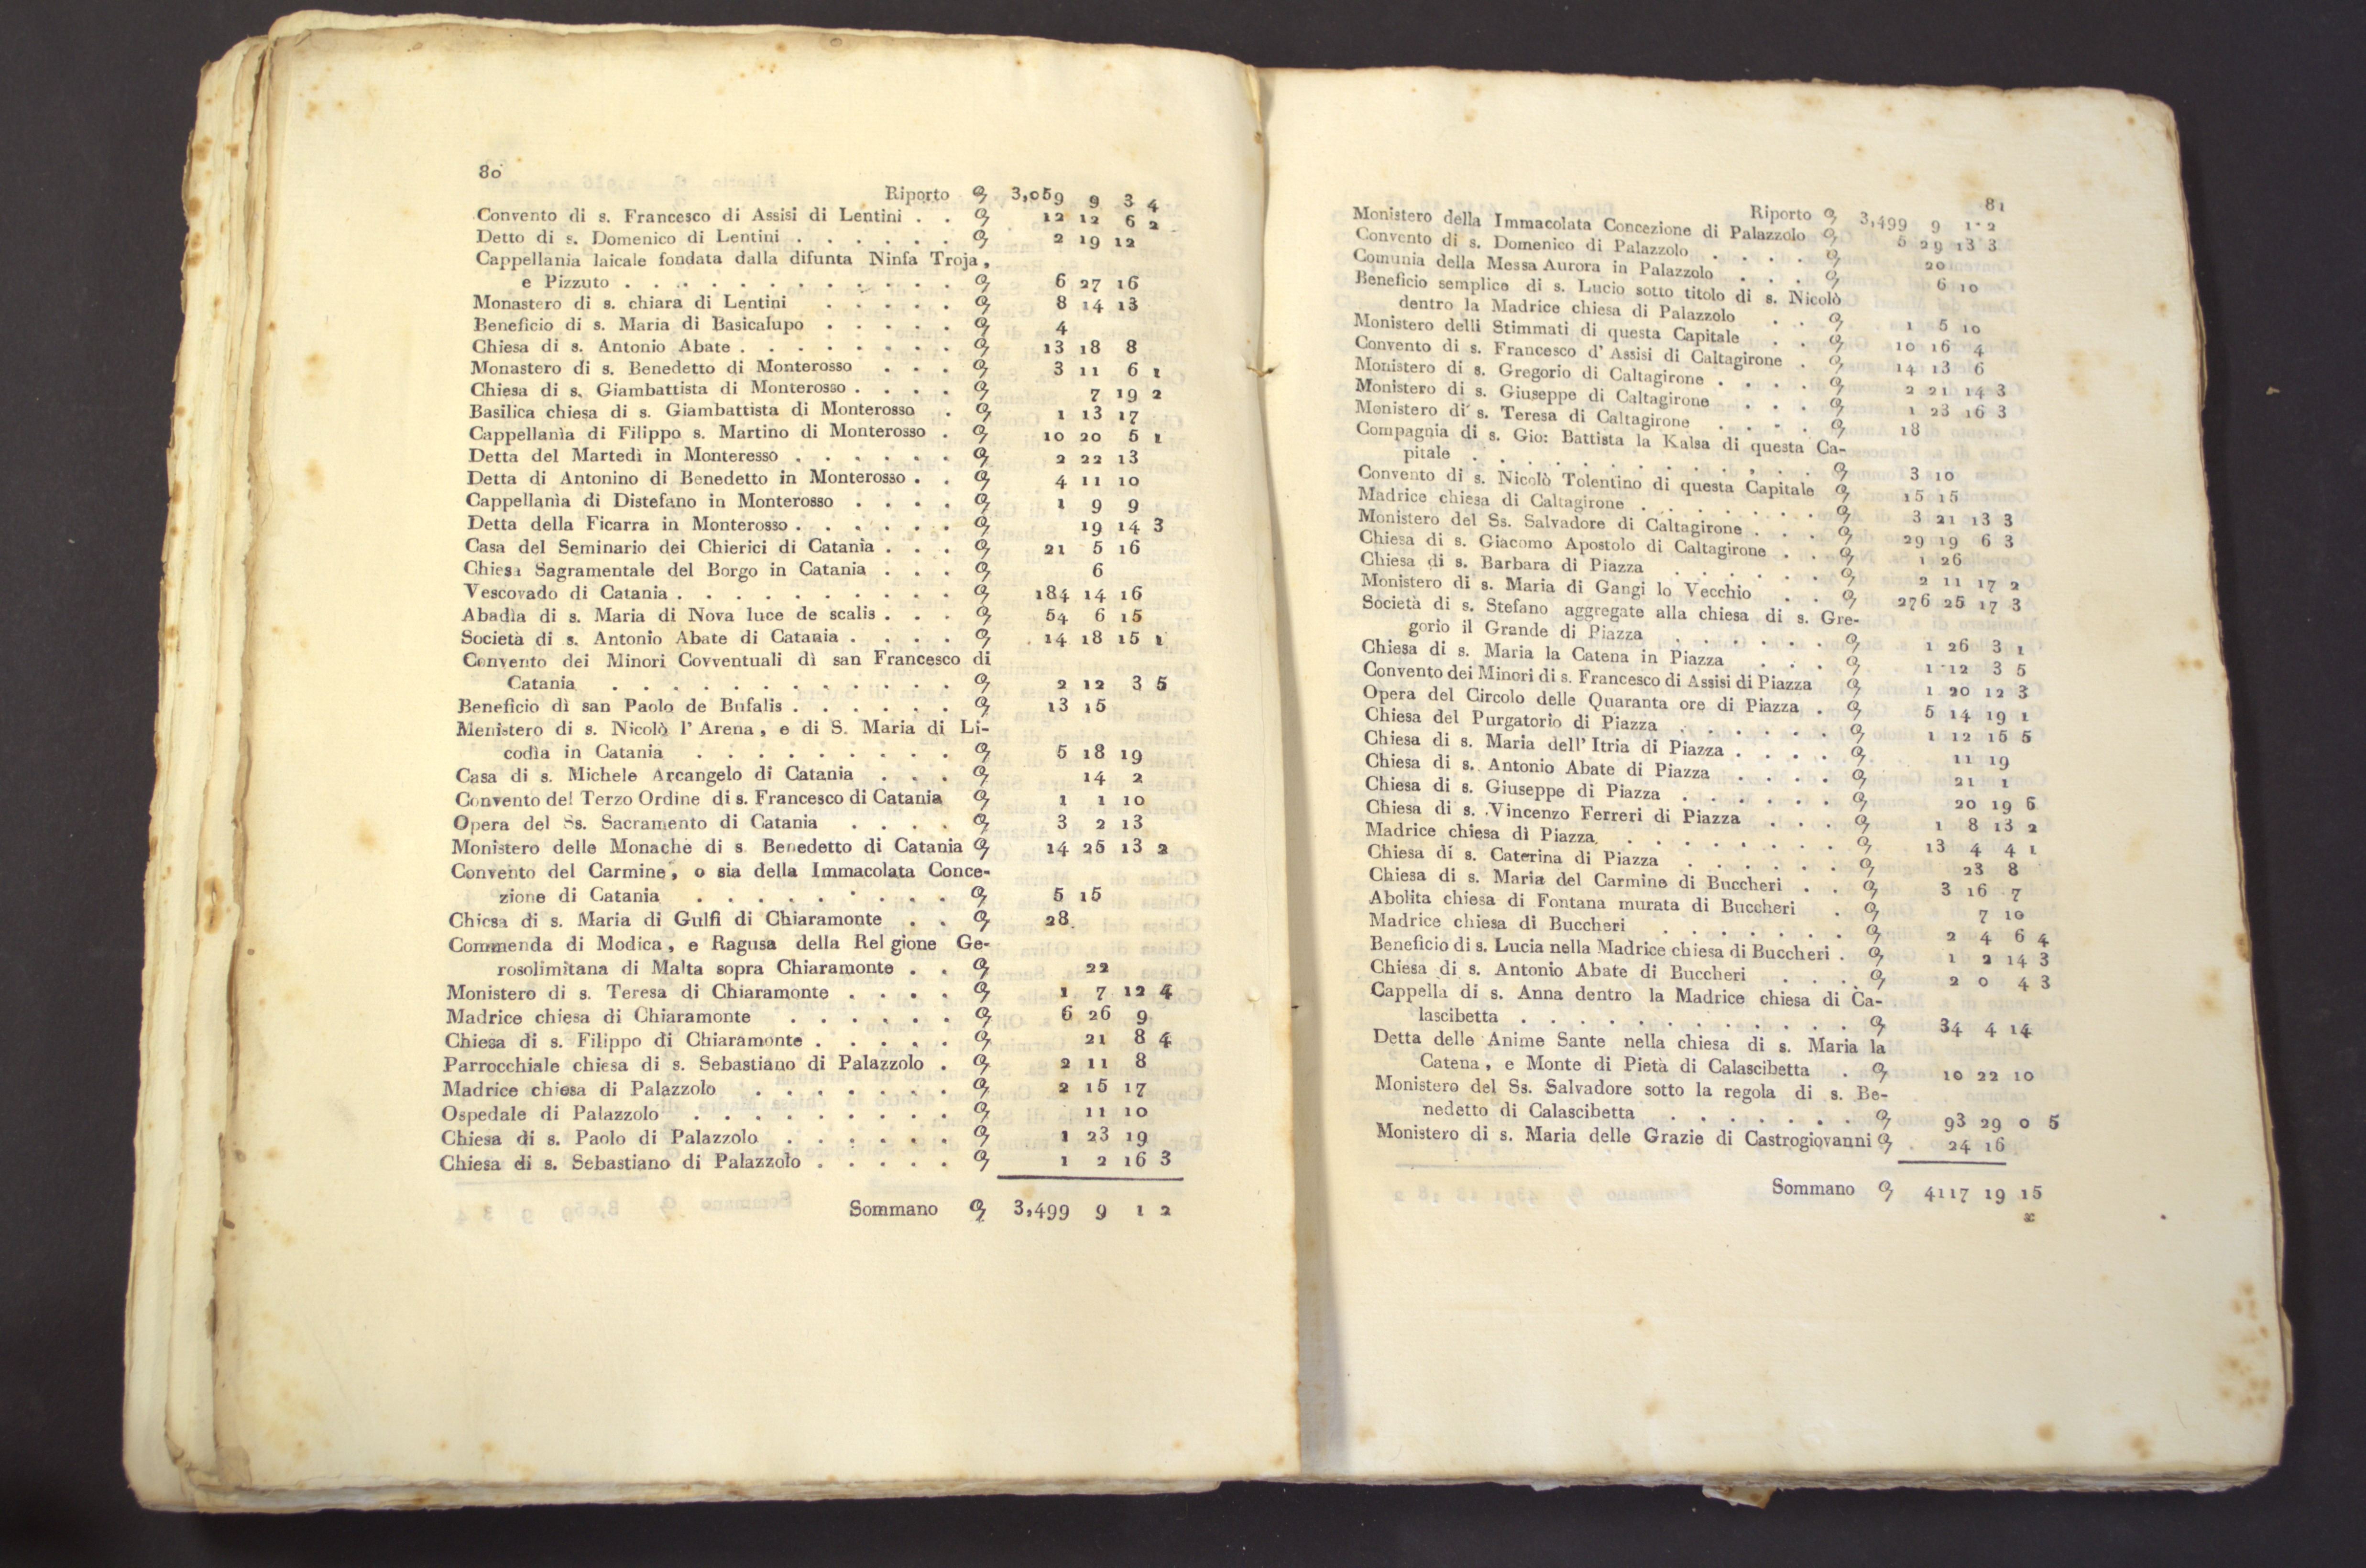 80
Riporto 3,059 9 3 4
Convento di s. Francesco di Assisi di Lentini . . 12 12 6 2
Detto di s. Domenico di Lentini . . . . . . 2 19 12
Cappellania laicale fondata dalla difunta Ninfa Troja,
e Pizzuto . . . . . . . . . . . . 6 27 16
Monastero di s. chiara di Lentini . . . . . 8 14 13
Beneficio di s. Maria di Basicalupo . . . . . 4
Chiesa di s. Antonio Abate . . . . . . . . 13 18 8
Monastero di s. Benedetto di Monterosso . . . 3 11 6 1
Chiesa di s. Giambattista di Monterosso . . . . 7 19 2
Basilica chiesa di s. Giambattista di Monterosso . 1 13 17
Cappellanìa di Filippo s. Martino di Monterosso . 10 20 5 1
Detta del Martedì in Monteresso . . . . . . 2 22 13
Detta di Antonino di Benedetto in Monterosso . . 4 11 10
Cappellanìa di Distefano in Monterosso . . . . 1 9 9
Detta della Ficarra in Monterosso . . . . . . 19 14 3
Casa del Seminario dei Chierici di Catania . . . 21 5 16
Chiesa Sagramentale del Borgo in Catania . . . 6
Vescovado di Catania . . . . . . . . . . 184 14 16
Abadìa di s. Maria di Nova luce de scalis . . . 54 6 15
Società di s. Antonio Abate di Catania . . . . 14 18 15 1
Convento dei Minori Covventuali dì san Francesco di
Catania . . . . . . . . . . . . 2 12 3 5
Beneficio dì san Paolo de Bufalis . . . . . . 13 15
Menistero di s. Nicolò l' Arena, e di S. Maria di Li-
codìa in Catania . . . . . . . . . 5 18 19
Casa di s. Michele Arcangelo di Catania . . . 14 2
Convento del Terzo Ordine di s. Francesco di Catania 1 1 10
Opera del Ss. Sacramento di Catania . . . . 3 2 13
Monistero delle Monache di s Benedetto di Catania 14 25 13 2
Convento del Carmine, o sia della Immacolata Conce-
zione di Catania . . . . . . . . . 5 15
Chiesa di s. Maria di Gulfi di Chiaramonte . . 28
Commenda di Modica, e Ragusa della Rel gione Ge-
rosolimitana di Malta sopra Chiaramonte . . 22
Monistero di s. Teresa di Chiaramonte . . . . 1 7 12 4
Madrice chiesa di Chiaramonte . . . . . . 6 26 9
Chiesa di s. Filippo di Chiaramonte . . . . . 21 8 4
Parrocchiale chiesa di s. Sebastiano di Palazzolo . 2 11 8
Madrice chiesa di Palazzolo . . . . . . . 2 15 17
Ospedale di Palazzolo . . . . . . . . . 11 10
Chiesa di s. Paolo di Palazzolo . . . . . . 1 23 19
Chiesa di s. Sebastiano di Palazzolo . . . . . 1 2 16 3
Sommano 3,499 9 1 2
81
Riporto 3,499 9 1 2
Monistero della Immacolata Concezione di Palazzolo 5 29 13 3
Convento di s. Domenico di Palazzolo . . . . 20
Comunia della Messa Aurora in Palazzolo . . . 6 10
Beneficio semplice di s. Lucio sotto titolo di s. Nicolò
dentro la Madrice chiesa di Palazzolo . . 1 5 10
Monistero delli Stimmati di questa Capitale . . 10 16 4
Convento di s. Francesco d' Assisi di Caltagirone . 14 13 6
Monistero di s. Gregorio di Caltagirone . . . . 2 21 14 3
Monistero di s. Giuseppe di Caltagirone . . . 1 23 16 3
Monistero di s. Teresa di Caltagirone . . . . 18
Compagnia di s. Gio: Battista la Kalsa di questa Ca-
pitale . . . . . . . . . . . . 3 10
Convento di s. Nicolò Tolentino di questa Capitale 15 15
Madrice chiesa di Caltagirone . . . . . . . 3 21 13 3
Monistero del Ss. Salvadore di Caltagirone . . . 29 19 6 3
Chiesa di s. Giacomo Apostolo di Caltagirone . . 1 26
Chiesa di s. Barbara di Piazza . . . . . . 2 11 17 2
Monistero di s. Maria di Gangi lo Vecchio . . 276 25 17 3
Società di s. Stefano aggregate alla chiesa di s. Gre-
gorio il Grande di Piazza . . . . . . 1 26 3 1
Chiesa di s. Maria la Catena in Piazza . . . 1 12 3 5
Convento dei Minori di s. Francesco di Assisi di Piazza 1 20 12 3
Opera del Circolo delle Quaranta ore di Piazza . 5 14 19 1
Chiesa del Purgatorio di Piazza . . . . . . 1 12 15 5
Chiesa di s. Maria dell' Itria di Piazza . . . . 11 19
Chiesa di s. Antonio Abate di Piazza . . . . 21 1
Chiesa di s. Giuseppe di Piazza . . . . . . 20 19 6
Chiesa di s. Vincenzo Ferreri di Piazza . . . 1 8 13 2
Madrice chiesa di Piazza . . . . . . . . 13 4 4 1
Chiesa di s. Caterina di Piazza . . . . . . 23 8
Chiesa di s. Maria del Carmine di Buccheri . . 3 16 7
Abolita chiesa di Fontana murata di Buccheri . 7 10
Madrice chiesa di Buccheri . . . . . . . 2 4 6 4
Beneficio di s. Lucia nella Madrice chiesa di Buccheri . 1 2 14 3
Chiesa di s. Antonio Abate di Buccheri . . . 2 0 4 3
Cappella di s. Anna dentro la Madrice chiesa di Ca-
lascibetta . . . . . . . . . . . . 34 4 14
Detta delle Anime Sante nella chiesa di s. Maria la
Catena, e Monte di Pietà di Calascibetta . 10 22 10
Monistero del Ss. Salvadore sotto la regola di s. Be-
nedetto di Calascibetta . . . . . . . 93 29 0 5
Monistero di s. Maria delle Grazie di Castrogiovanni 24 16
Sommano 4117 19 15
x